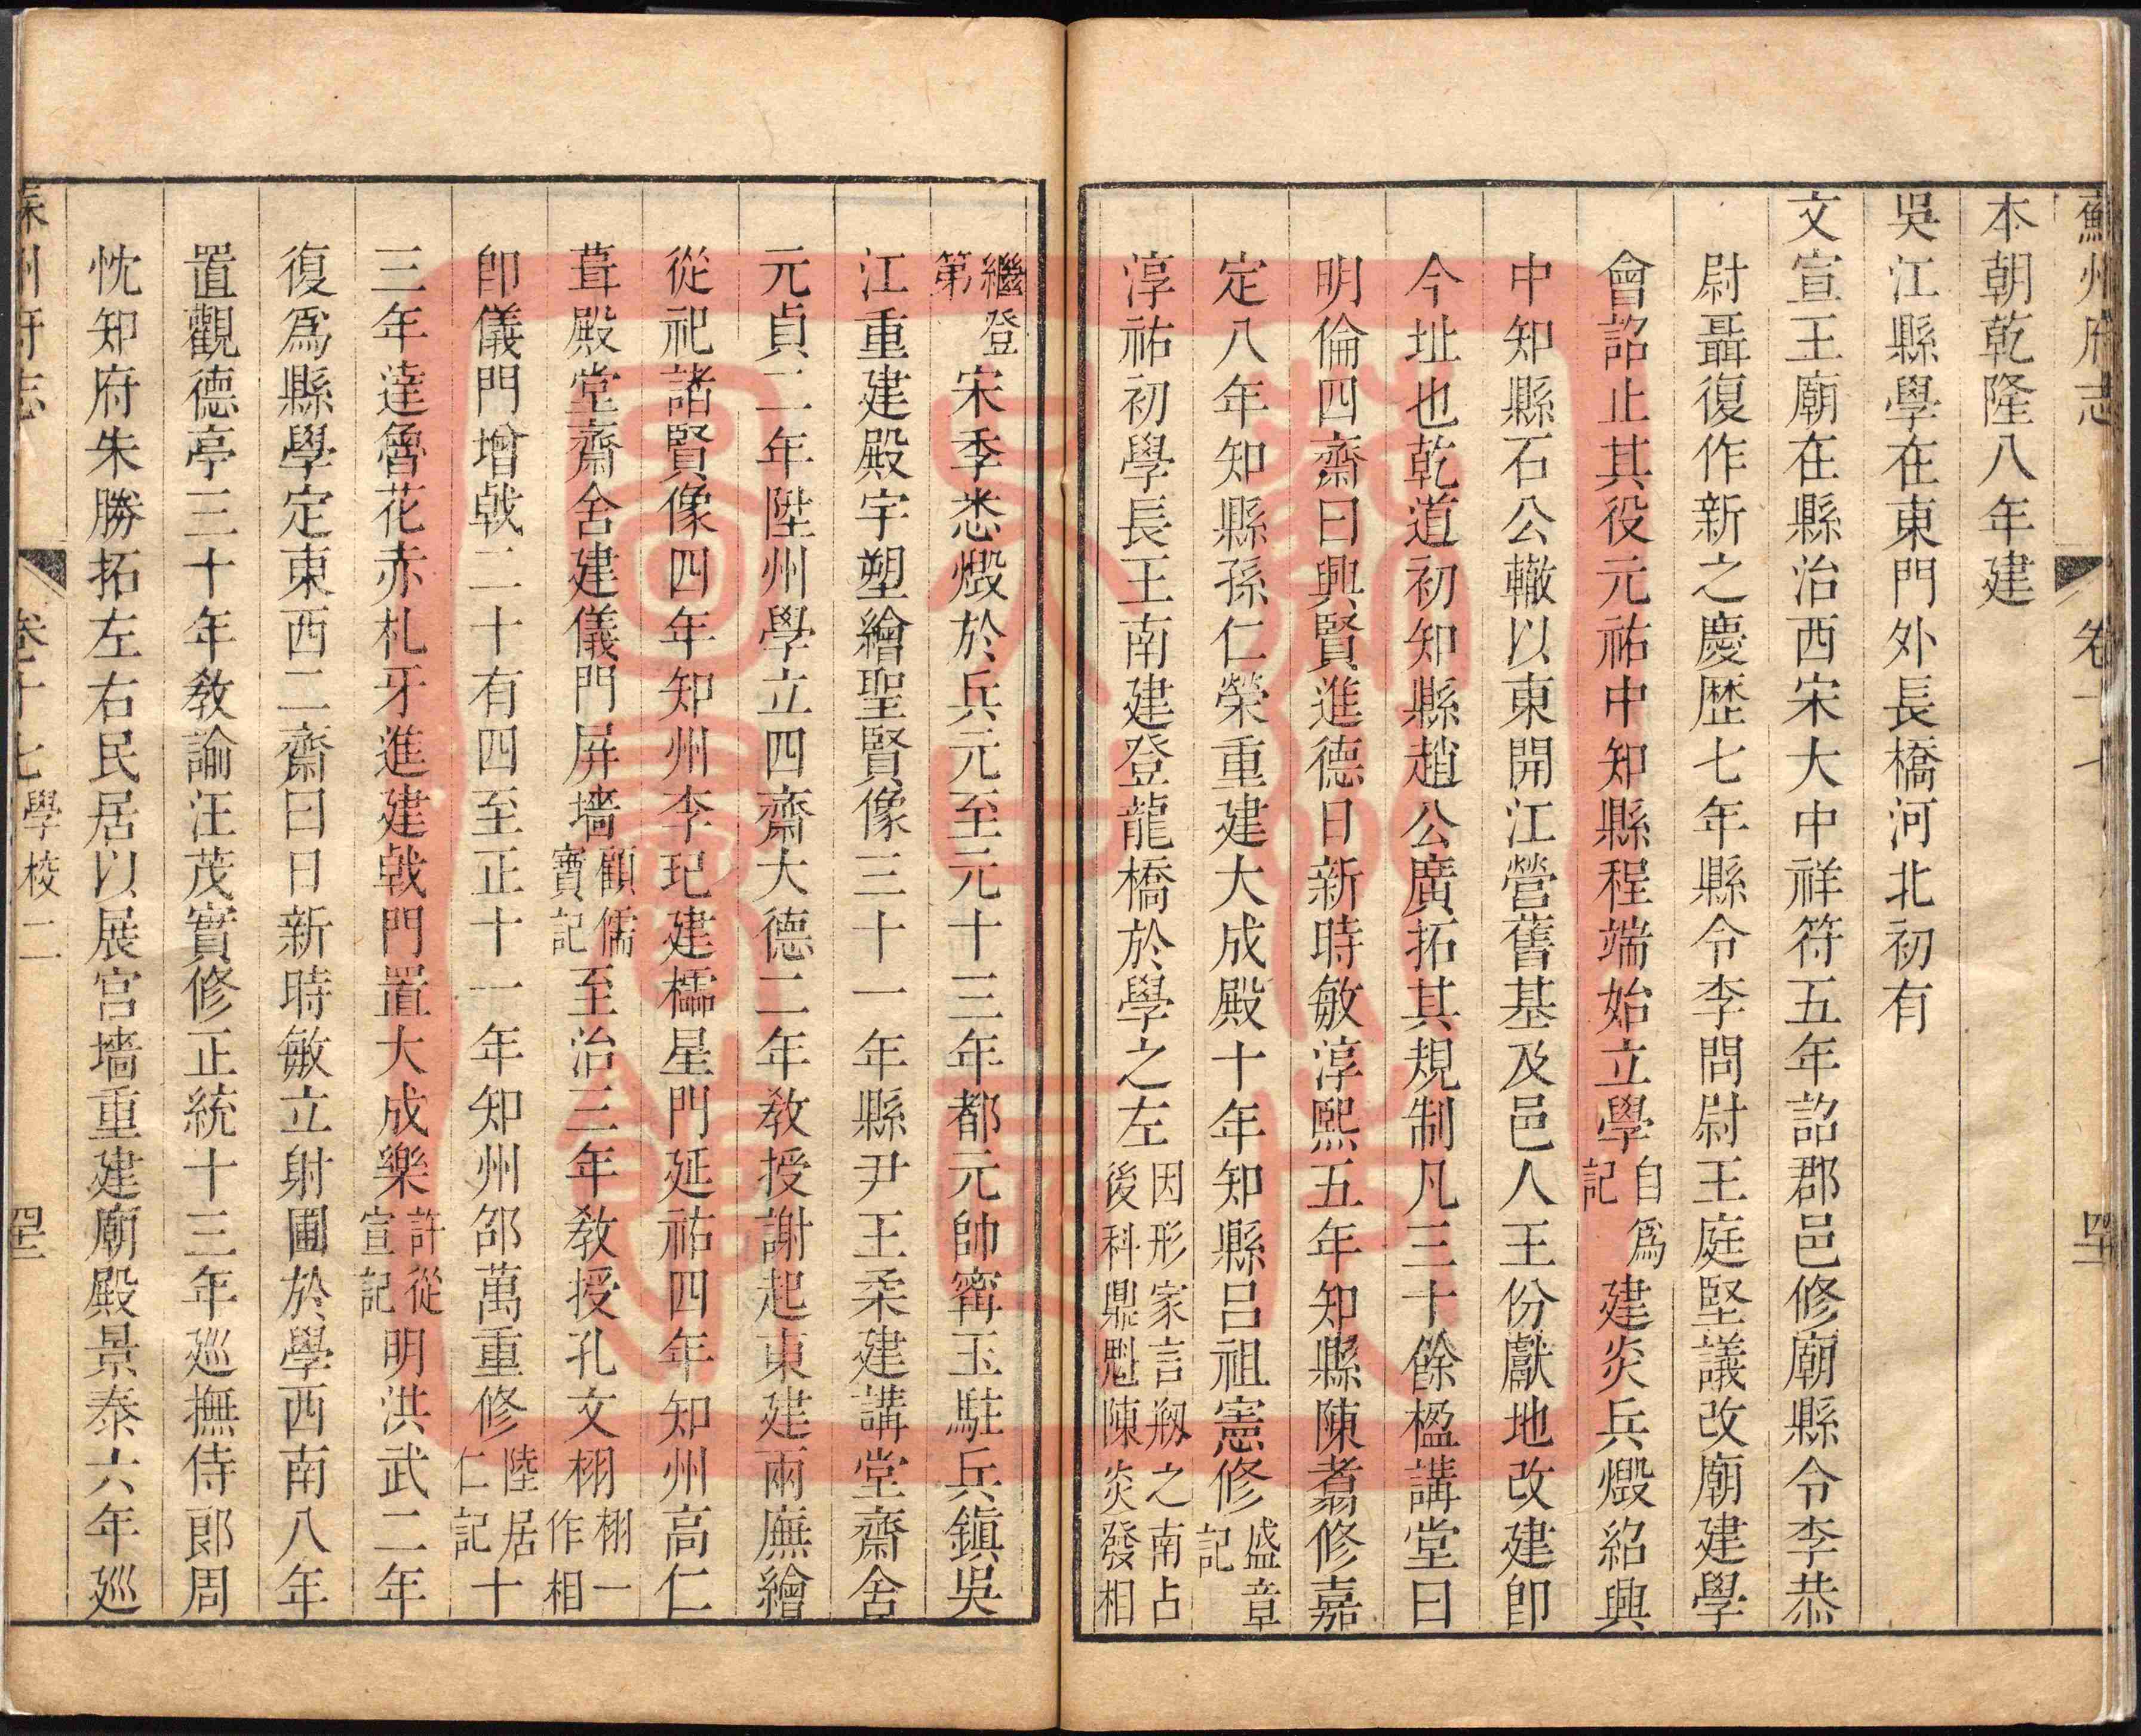 蘇州府志 卷十七
本朝乾隆八年建
吳江縣學在東門外長橋河北初有
文宣王廟在縣治西宋大中祥符五年詔郡邑修廟縣令李恭
尉聶復作新之慶歷七年縣令李問尉王庭堅議改廟建學
會詔止其役元祐中知縣程端始立學自爲記建炎兵燬紹興
中知縣石公轍以東開江營舊基及邑人王份獻地改建即
今址也乾道初知縣趙公廣拓其規制凡三十餘楹講堂曰
明倫四齋曰興賢進德日新時敏淳熙五年知縣陳翥修嘉
定八年知縣孫仁榮重建大成殿十年知縣呂祖憲修盛章記
淳祐初學長王南建登龍橋於學之左因形家言剏之南占後科鼎魁陳炎發相
繼登第宋季悉燬於兵元至元十三年都元帥甯玉駐兵鎮吳
江重建殿宇塑繪聖賢像三十一年縣尹王柔建講堂齋舍
元貞二年陞州學立四齋大德二年教授謝起東建兩廡繪
從祀諸賢像四年知州李玘建櫺星門延祐四年知州高仁
葺殿堂齋舍建儀門屏墻顧儒寶記至治三年教授孔文栩栩一作相
卽儀門增戟二十有四至正十一年知州邵萬重修陸居仁記十
三年達魯花赤札牙進建戟門置大成樂許從宣記明洪武二年
復爲縣學定東西二齋曰日新時敏立射圃於學西南八年
置觀德亭三十年教諭汪茂實修正統十三年巡撫侍郎周
忱知府朱勝拓左右民居以展宮墻重建廟殿景泰六年巡
蘇州府志 卷十七 學校二